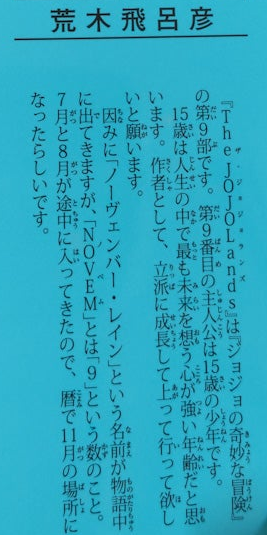 荒木飛呂彦
『The JOJOLands』は『ジョジョの奇妙な冒険』
の第9部です。第9番目の主人公は15歳の少年です。
15歳は人生の中で最も未来を想う心が強い年齢だと思
います。作者として、立派に成長して上って行って欲し
いと願います。
因みに「ノーヴェンバー・レイン」という名前が物語中
に出てきますが、「NOVEM」とは「9」という数のこと。
7月と8月が途中に入ってきたので、暦で11月の場所に
なったらしいです。